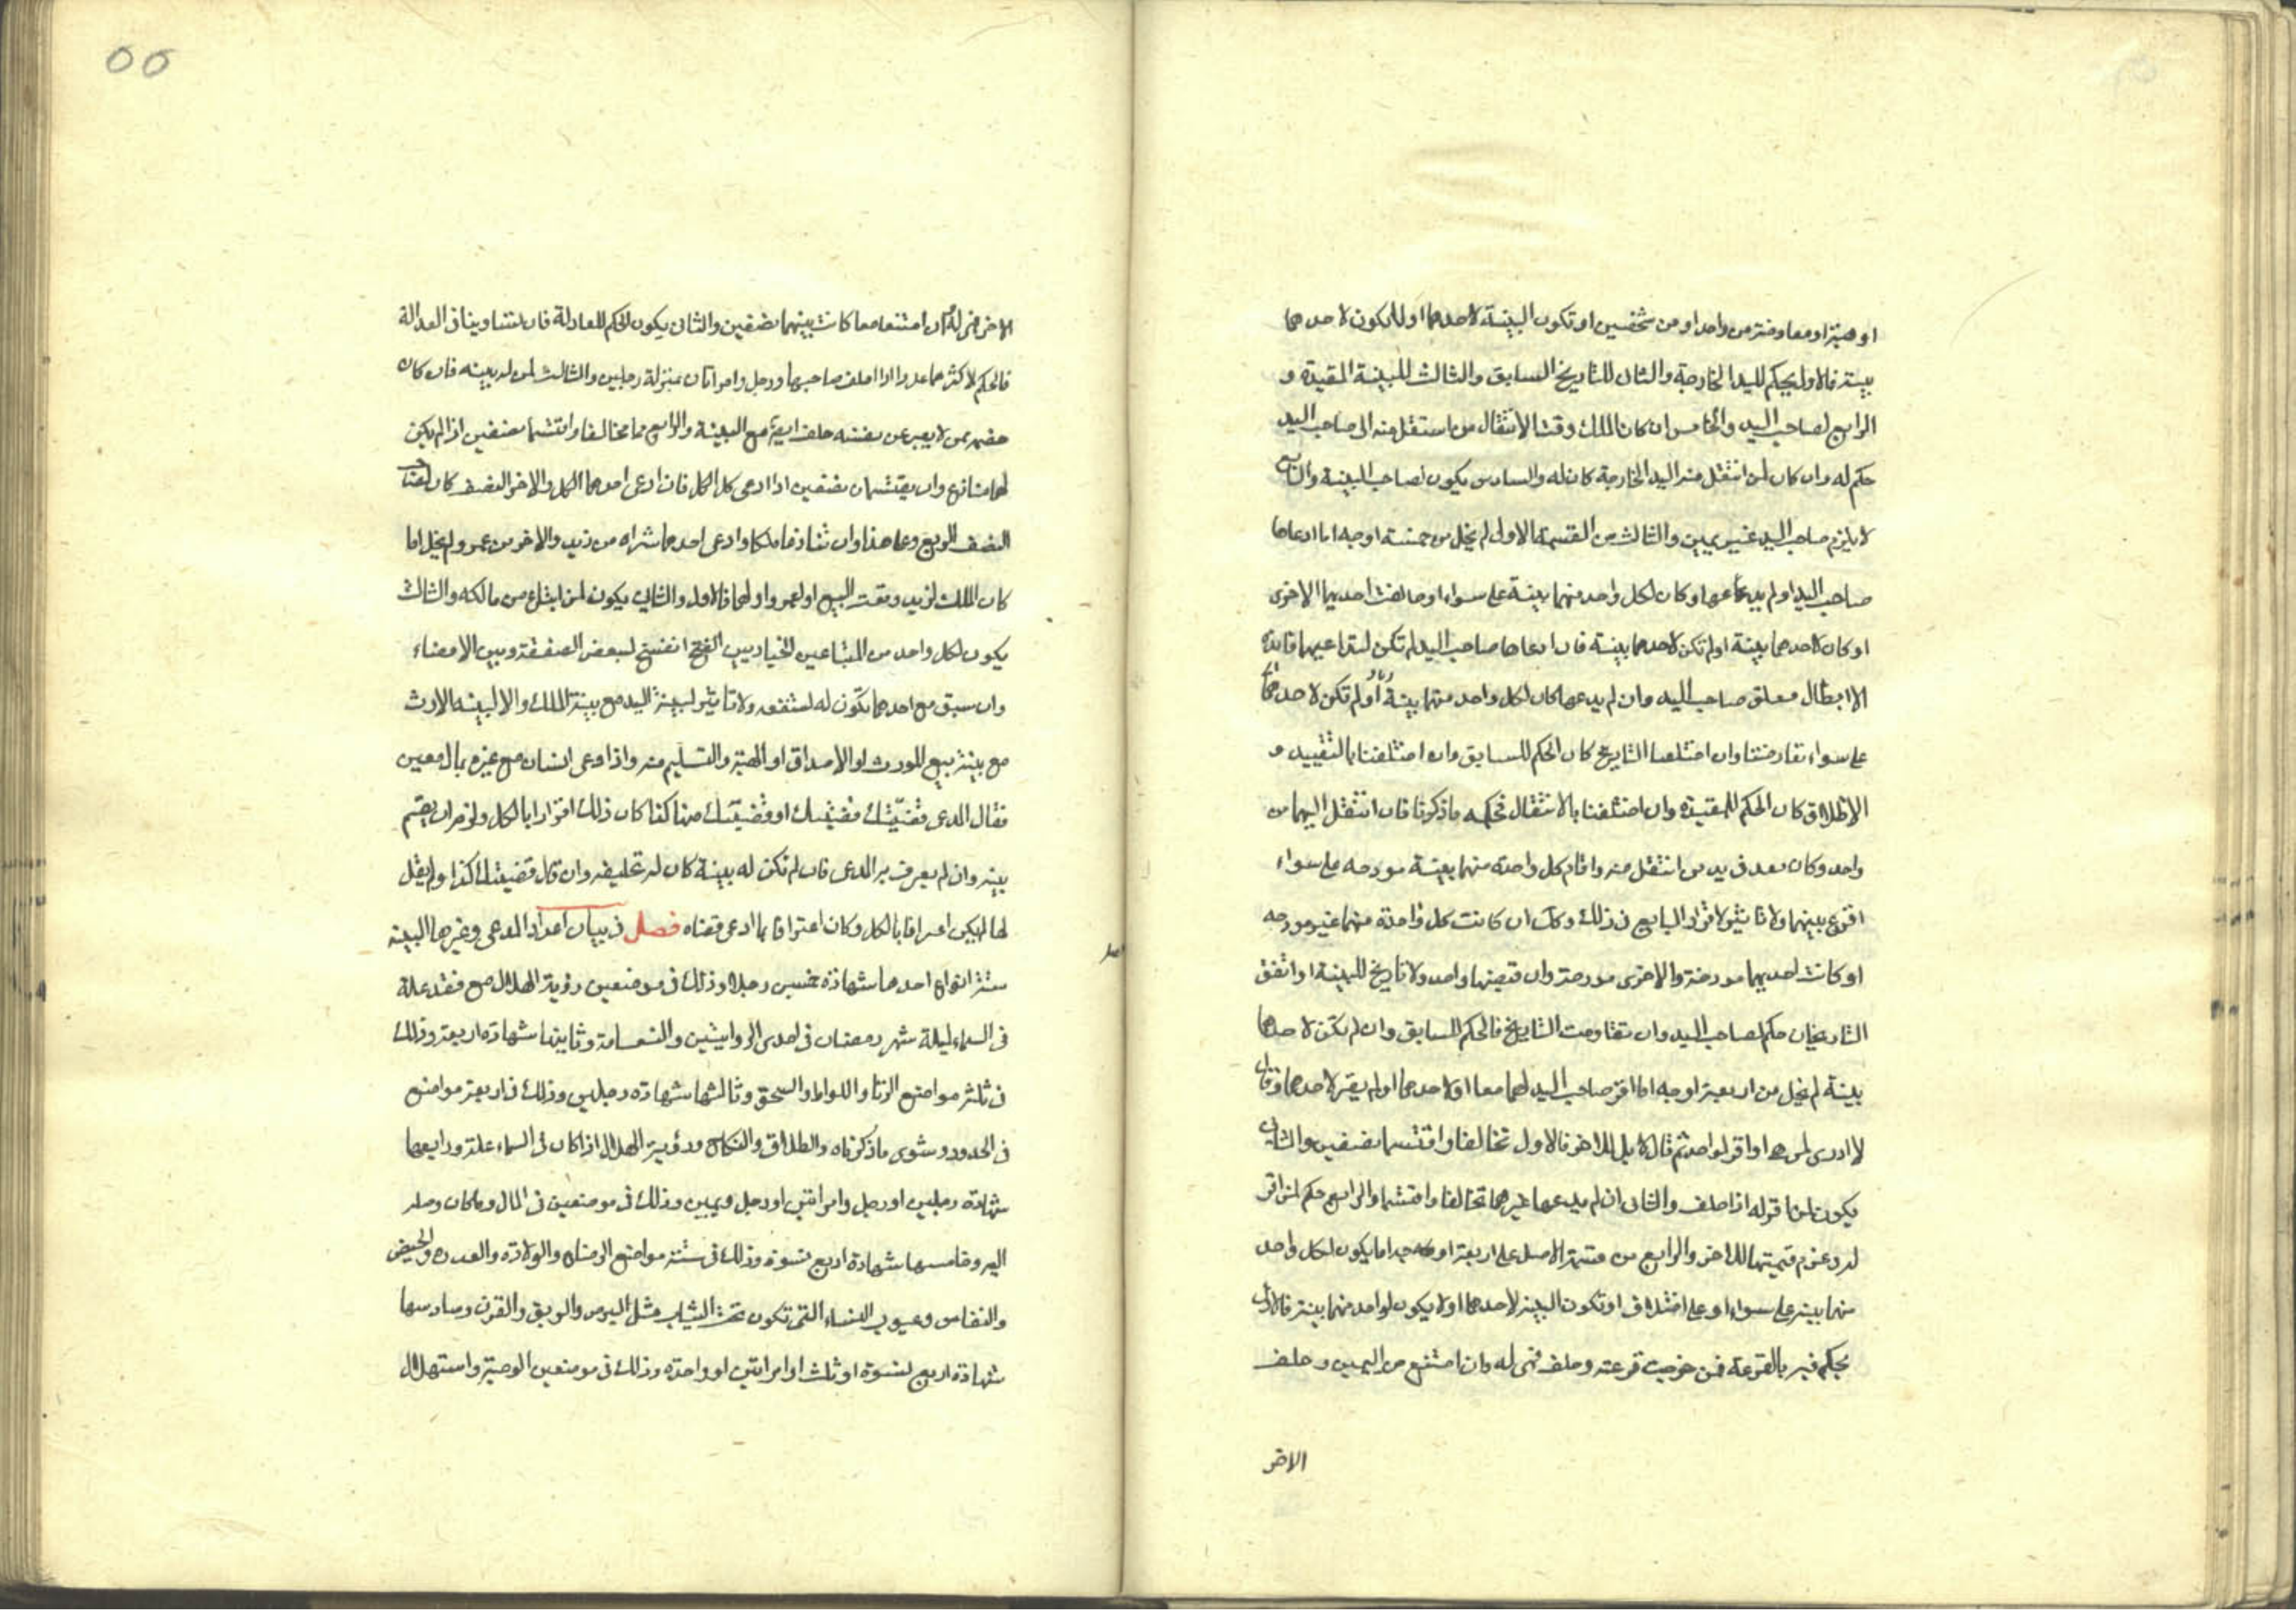 او هبة او معاوضة من واحد او من شخصين او تكون البينة لاحدهما او لا يكون لاحدهما
بينة فالاول يحكم لليد الخارجة والثانى للتاريخ السابق والثالث للبينة المقيدة و
الرابع لصاحب اليد والخامس ان كان الملك وقت الانتقال من استقل منه الى صاحب اليد
حكم له وان كان لمن انتقل منه اليد الخارجة كان له والسادس يكون لصاحب البينة والسابع
لا يلزم صاحب اليد غير يمين والثالث من القسمة الاولى لم يخل من خمسة اوجه اما ادعاها
صاحب اليد او لم يدعها وكان لكل واحد منهما بينة على سواء او خالفت احديهما الاخرى
او كان لاحدهما بينة او لم تكن لاحدهما بينة فان ادعاها صاحب اليد لم تكن لتداعيهما فائدة
الا ابطال معلق صاحب اليد وان لم يدعها كان لكل واحد منهما بينة او لم تكن لاحدهما
على سواء تعارضتا وان اختلفا التاريخ كان الحكم للسابق وان اختلفتا بالتقييد و
الاطلاق كان الحكم للمقيدة وان اختلفتا بالانتقال فحكمه ما ذكرنا فان انتقل اليهما من
واحد وكان بعد فى يد من انتقل منه واقام كل واحدة منهما بينة مورخه على سواء
اقرع بينهما ولا تاثير لاقرار البايع فى ذلك وكذا ان كانت كل واحدة منهما غير مورخه
او كانت احديهما مورخة والاخرى مورخة وان قبضها واحد ولا تاريخ للبينة او اتفق
التاريخان حكم لصاحب اليد وان تفاوت التاريخ فالحكم للسابق وان لم تكن لاحدهما
بينة لم يخل من اربعة اوجه اما اقر صاحب اليد لهما معا او لاحدهما او لم يقر لاحدهما وقال
لا ادرى لمن هى او اقر لواحد ثم قال لا بل للاخر فالاول تحالفا واقتسما نصفين والثانى
يكون لمن اقر له اذا حلف والثالث ان لم يدعها غيرهما تحالفا واقتسما والرابع حكم لمن اقر
له وغرم قيمتها للاخر والرابع من قسمة الاصل على اربعة اوجه اما يكون لكل واحد
منهما بينة على سواء او على اختلاف او تكون البينة لاحدهما او لا يكون لواحد منهما بينة فالاول
يحكم فيه بالقرعة فمن خرجت قرعته وحلف فهى له وان امتنع من اليمين وحلف
الاخر
الاخر فهى له وان امتنعا معا كانت بينهما نصفين والثانى يكون الحكم للعادلة فان تساويتا فى العدالة
فالحكم لاكثرهما عددا اذا حلف صاحبها ورجل وامراتان بمنزلة رجلين والثالث لمن له بينه فان كان
خصمه ممن لا يعبر عن نفسه حلف ايضا مع البينة والرابع تحالفا واقتسما نصفين اذا لم يكن
لهما منازع وان يقتسمان نصفين اذا ادعى كل الكل فان ادعى احدهما الكل والاخر النصف كان
النصف الربع وعلى هذا وان تنازعا ملكا وادعى احدهما شراه من زيد والاخر من عمرو ولم يخل اما
كان الملك لزيد وقت البيع او لعمرو او لهما فالاول والثانى يكون لمن ابتاع من مالكه والثالث
يكون لكل واحد من المتباعين الخيار بين الفسخ لتبعض الصفقة وبين الامضاء
وان سبق مع احدهما تكون له ولا تاثير لبينة اليد مع بينة الملك والا لبينه الارث
مع بينة بيع المورث او الاصداق او الهبة والتسليم منه واذا ادعى انسان مع غيره بمال معين
فقال المدعى قضيتك او قضيتك منها كذا كان ذلك اقرارا بالكل ولزمه ان يقيم
بينه وان لم يعرف به المدعى فان لم تكن له بينة كان له تحليفه وان قال قضيتك كذا ولم يقل
لها لم يكن اعترافا بالكل وكان اعترافا بما ادعى قضاه فصل فى بيان اعداد المدعى وغيرها البينه
ستة انواع احدها شهادة خمسين رجلا وذلك فى موضعين رؤية الهلال مع فقد علة
فى السماء ليلة شهر رمضان فى احدى الروايتين والقسامة وثانيها شهادة اربعة وذلك
فى ثلثة مواضع الزنا واللواط والسحق وثالثها شهادة رجلين وذلك فى اربعة مواضع
فى الحدود وسوى ما ذكرناه والطلاق والنكاح ورؤية الهلال اذا كان فى السماء علة ورابعها
شهادة رجلين او رجل وامراتين او رجل ويمين وذلك فى موضعين فى المال وما كان وصلة
اليه وخامسها شهادة اربع نسوة وذلك فى ستة مواضع الرضاع والولادة والعدة والحيض
والنفاس وعيوب النساء التى تكون تحت الثياب مثل البرص والرتق والقرن وسادسها
شهادة اربع نسوة او ثلث او امراتين او واحدة وذلك فى موضعين الوصية واستهلال